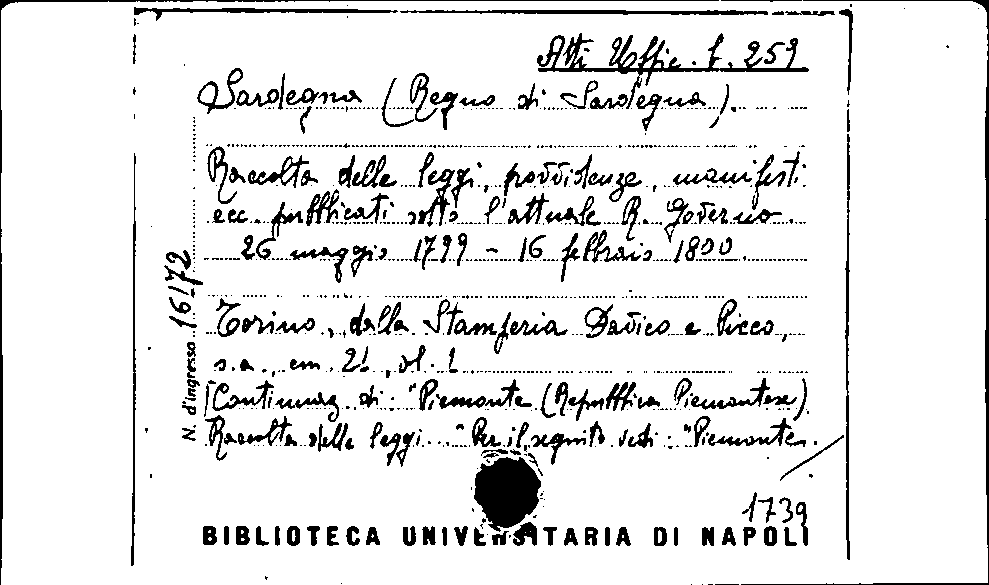 Atti Uffic. f. 259
Sardegna (Regno di Sardegna).
Raccolta delle leggi, provvidenze, manifesti
ecc. pubblicati sotto l'attuale R. Governo.
26 maggio 1799 - 16 febbraio 1800.
Torino, dalla Stamperia Davico e Picco,
s.a., cm. 21, vl. 1
[Continuaz. di: "Piemonte (Repubblica Piemontese)
Raccolta delle leggi..." Per il seguito vedi: "Piemonte.
N. d'ingresso 16172
1739
BIBLIOTECA UNIVERSITARIA DI NAPOLI